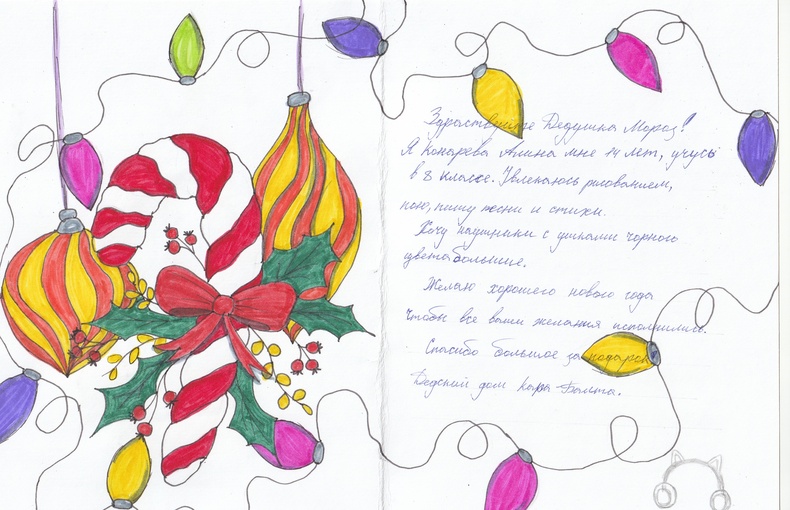 Здравствуйте Дедушка Мороз!
Я Конарева Алина мне 14 лет, учусь
в 8 классе. Увлекаюсь рисованием,
пою, пишу песни и стихи.
Хочу наушники с ушками чорного
цвета большие.
Желаю хорошего нового года
чтобы все ваши желания исполнились.
Спасибо большое за подарок!
Детский дом Кара Балта.